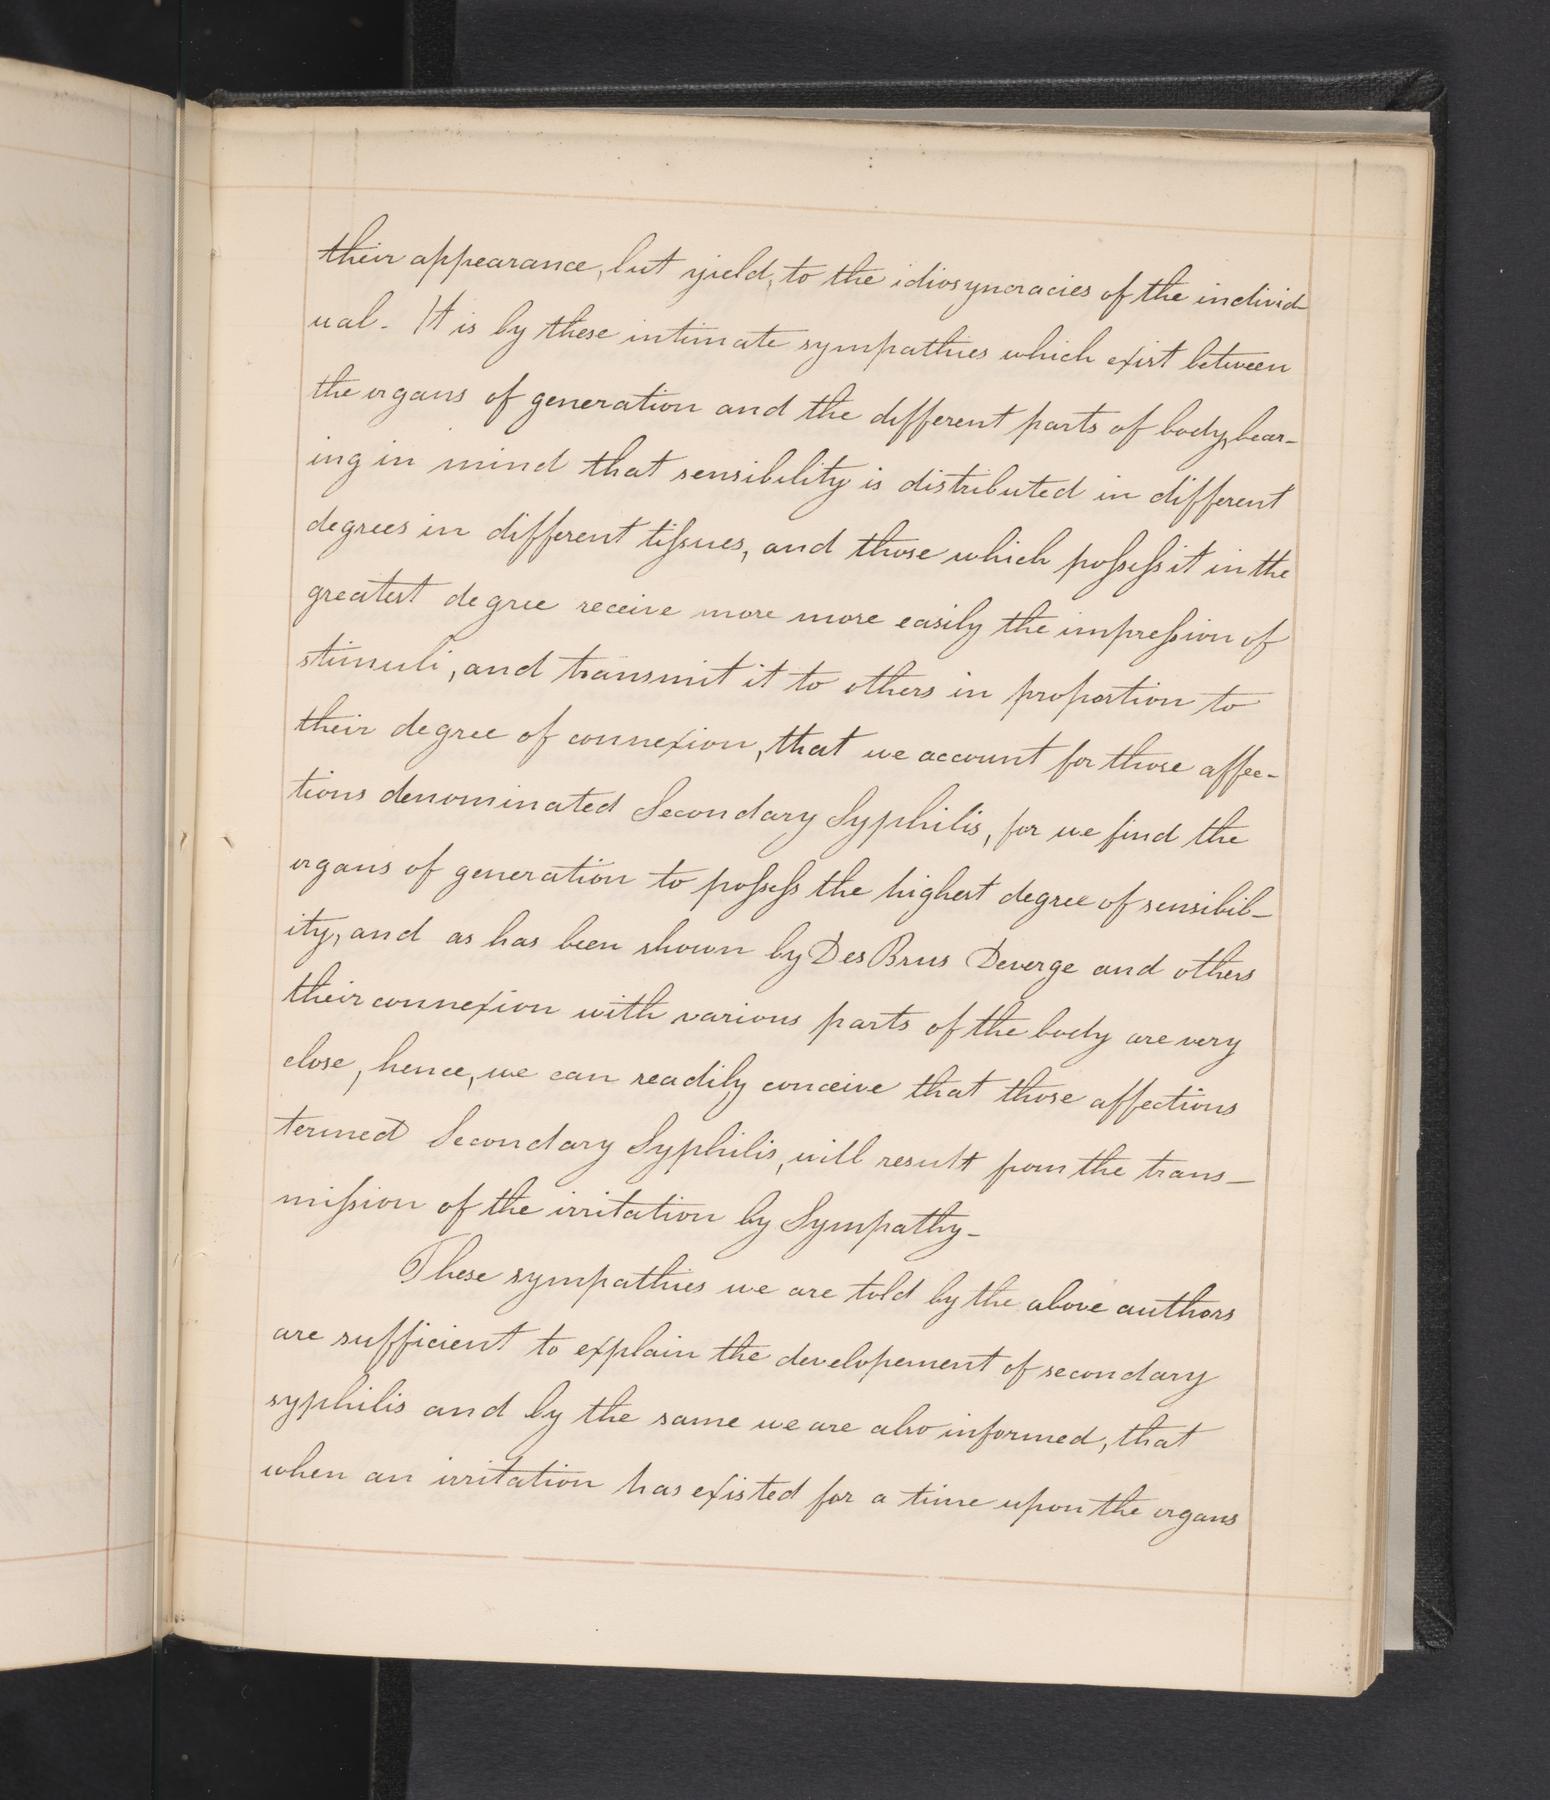 their appearance, but yield, to the idiosyncracies of the individ
ual. It is by these intimate sympathies which exist between
the organs of generation and the different parts of body, bear-
ing in mind that sensibility is distributed in different
degrees in different tissues, and those which possess it in the
greatest degree receive more more easily the impression of
stimuli, and transmit it to others in proportion to
their degree of connexion, that we account for those affec-
tions denominated Secondary Syphilis, for we find the
organs of generation to possess the highest degree of sensibil-
ity, and as has been shown by Des Brus Deverge and others
their connexion with various parts of the body are very
close, hence, we can readily conceive that those affections
termed Secondary Syphilis, will result from the trans-
mission of the irritation by Sympathy-
These sympathies we are told by the above authors
are sufficient to explain the developement of secondary
syphilis and by the same we are also informed, that
when an irritation has existed for a time upon the organs